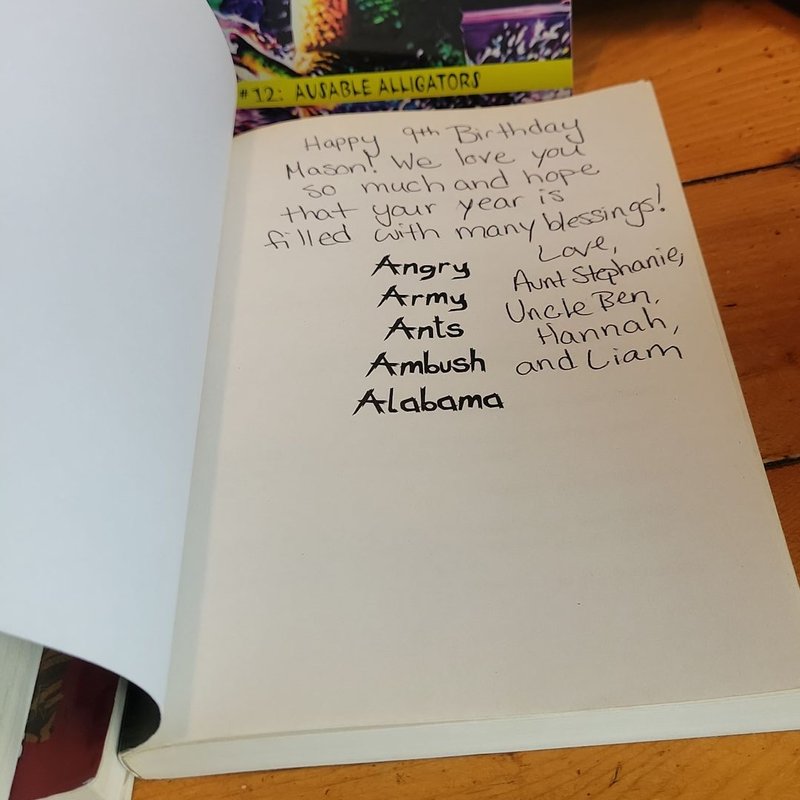 #12: AUSABLE ALLIGATORS
Happy 9th Birthday
Mason! We love you
so much and hope
that your year is
filled with many blessings!
Love,
Aunt Stephanie,
Uncle Ben,
Hannah,
and Liam
Angry
Army
Ants
Ambush
Alabama